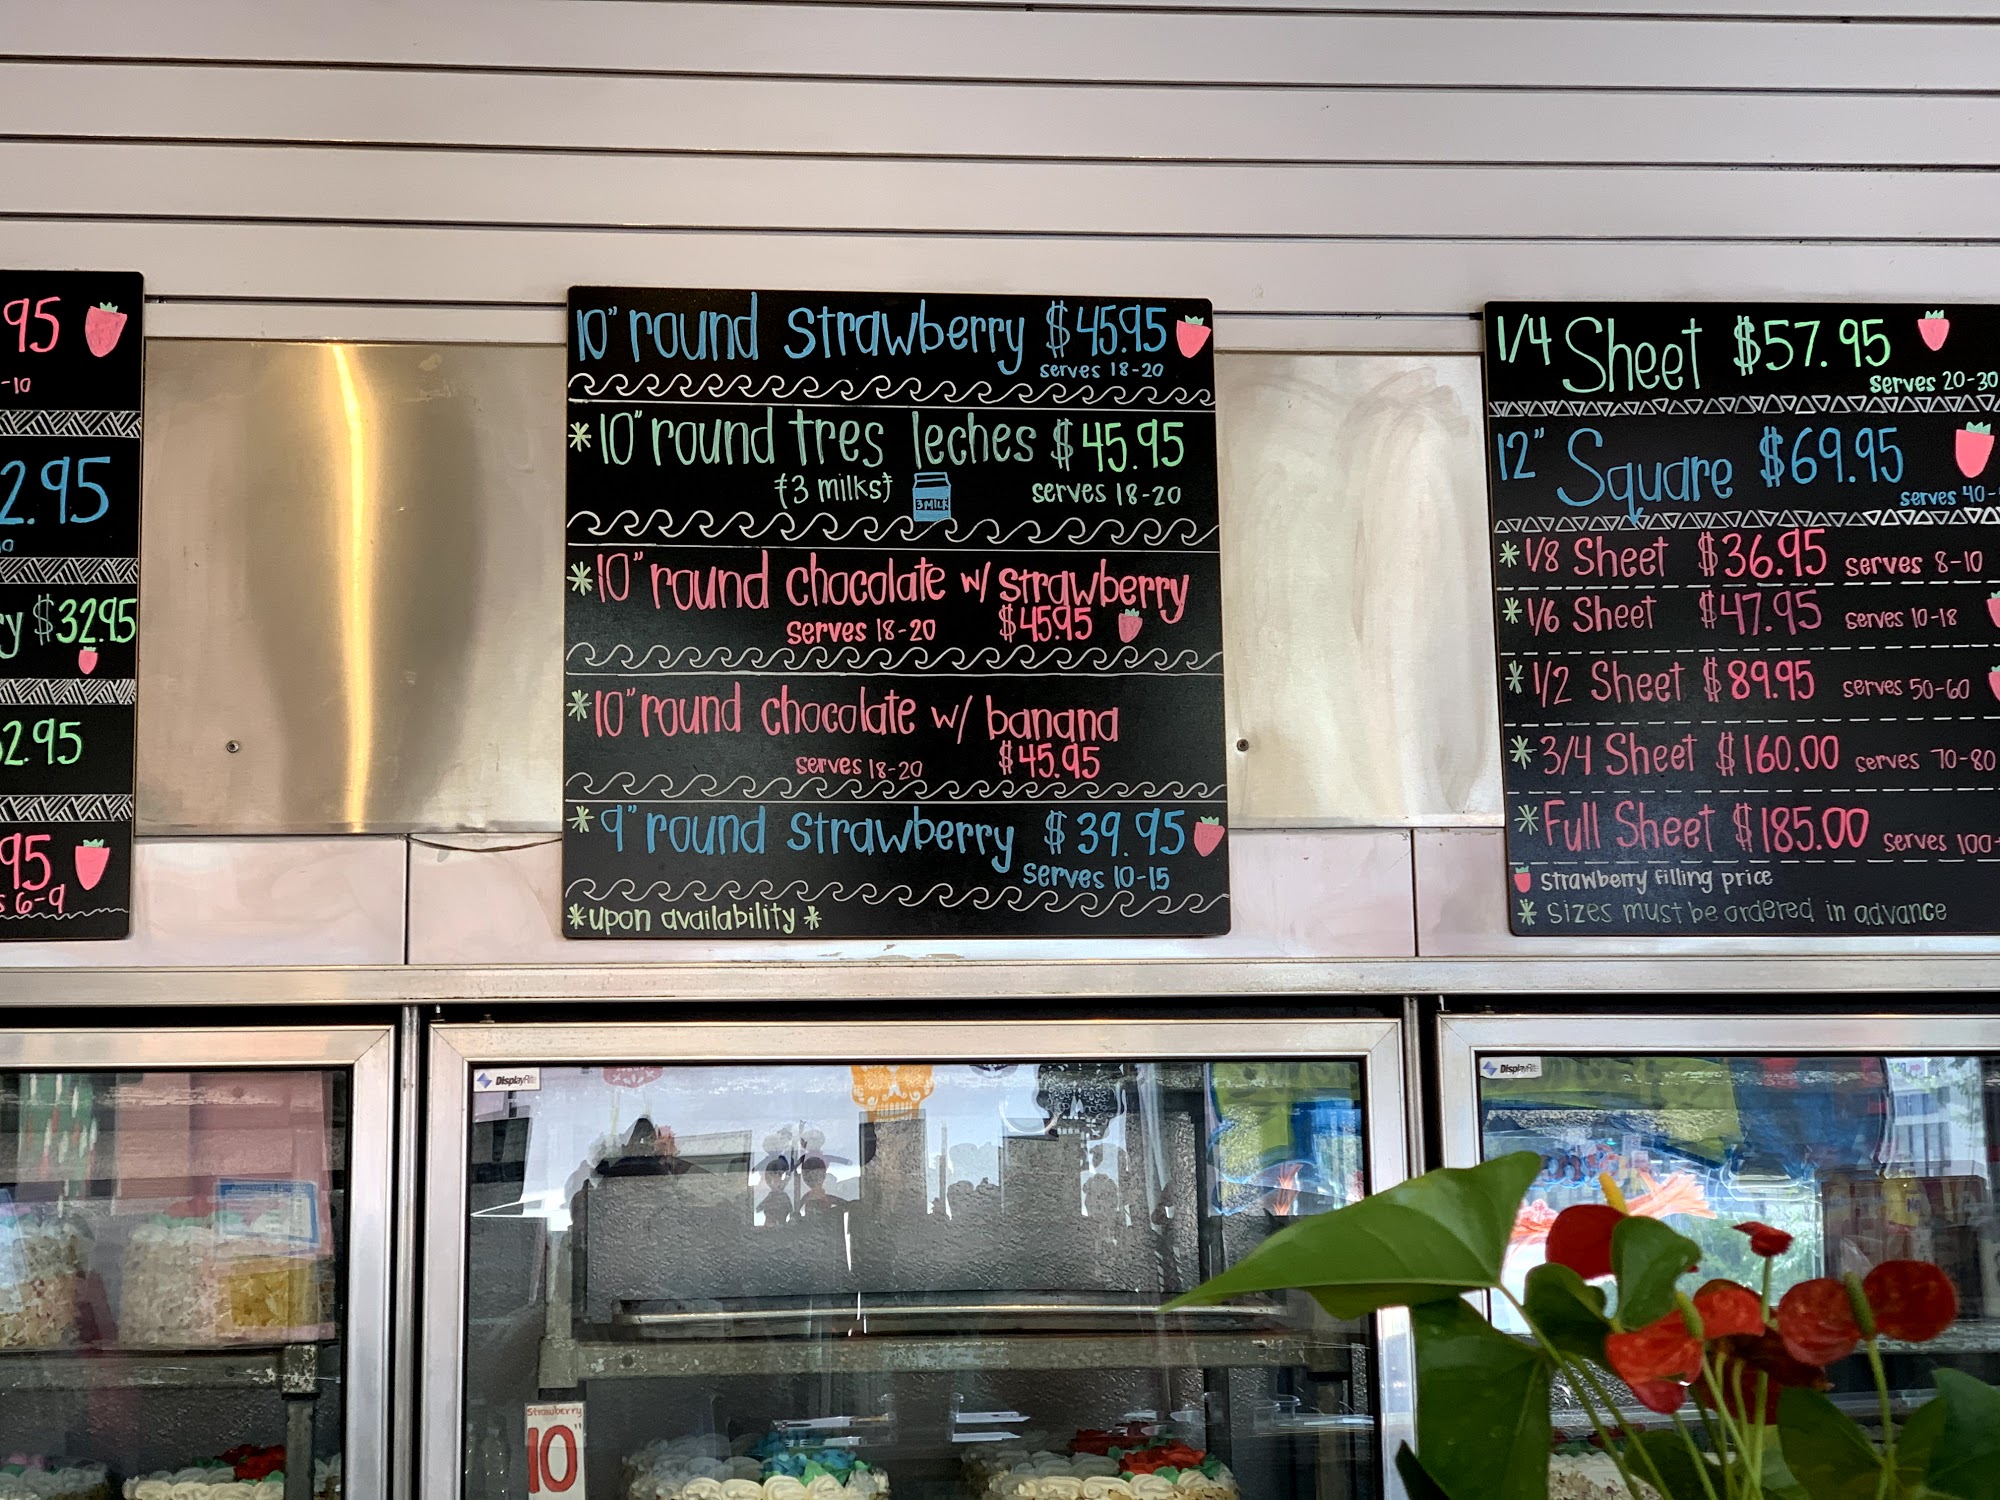 95
-10
2.95
y $32.95
2.95
95
s 6-9
10" round Strawberry $45.95
serves 18-20
*10" round tres leches $45.95
{3 milks}
3 MILK
serves 18-20
*10" round chocolate w/ strawberry
serves 18-20 $45.95
*10" round chocolate w/ banana
serves 18-20 $45.95
*9" round Strawberry $39.95
serves 10-15
*upon availability*
1/4 Sheet $57.95
serves 20-30
12" Square $69.95
serves 40-
*1/8 Sheet $36.95 serves 8-10
*1/6 Sheet $47.95 serves 10-18
*1/2 Sheet $89.95 serves 50-60
*3/4 Sheet $160.00 serves 70-80
*Full Sheet $185.00 serves 100+
strawberry filling price
* sizes must be ordered in advance
DisplayRite
DisplayRite
Strawberry
10"